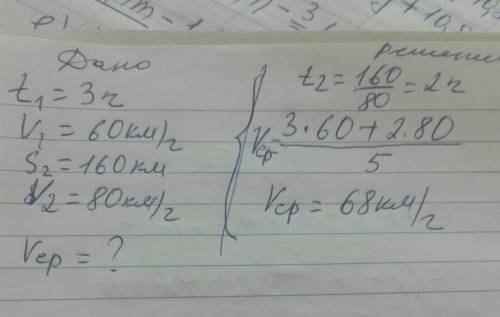 Дано
t₁ = 3ч
V₁ = 60км/ч
S₂ = 160км
V₂ = 80км/ч
Vср = ?
решение
t₂ = 160/80 = 2ч
Vср = 3·60+2·80/5
Vср = 68км/ч